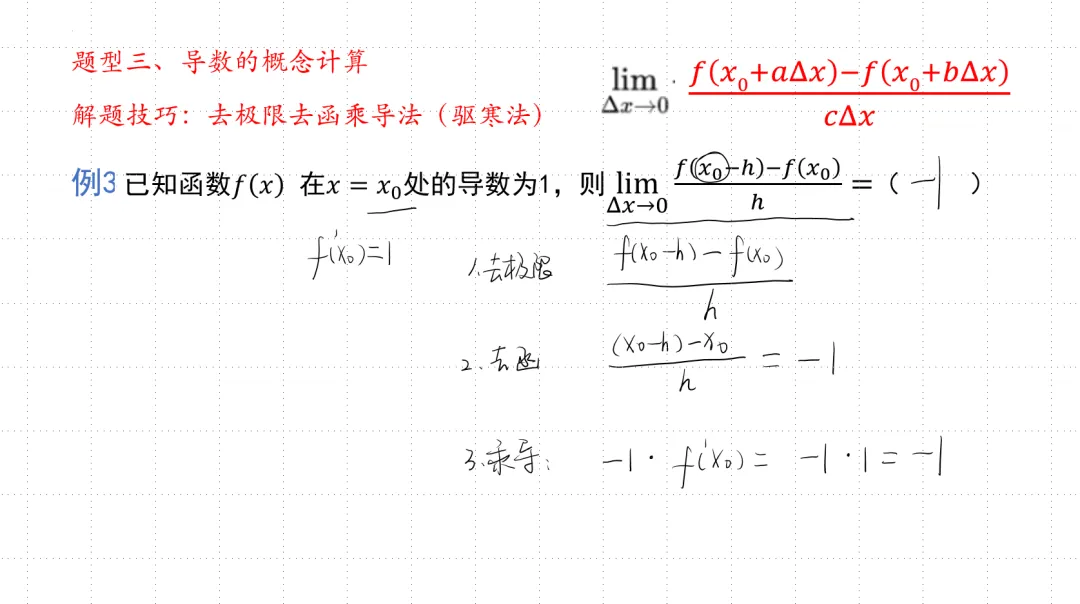 题型三、导数的概念计算
解题技巧：去极限去函乘导法（驱寒法）
lim Δx→0 f(x₀+aΔx)−f(x₀+bΔx) / cΔx
例3 已知函数f(x) 在x = x₀处的导数为1，则 lim Δx→0 f(x₀−h)−f(x₀) / h =（ −1 ）
f'(x₀)=1
1.去极限 f(x₀−h) − f(x₀) / h
2.去函 (x₀−h)−x₀ / h = −1
3.乘导： −1 · f'(x₀) = −1 · 1 = −1